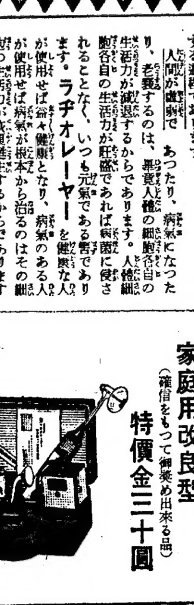 人間が虚弱で あつたり、病氣になつた
り、老衰するのは、畢竟人體の細胞各自の
生活力が減退するからであります。人體細
胞各自の生活力が旺盛であれば病菌に侵さ
れることなく、いつも元氣である譯であり
ます。ラヂオレーヤーを健康な人
が使用せば益々健康となり、病氣のある人
が使用せば病氣が根本から治るのはその細
するからであります
家庭用改良型
(確信をもつて御奬め出來る品)
特價金三十圓